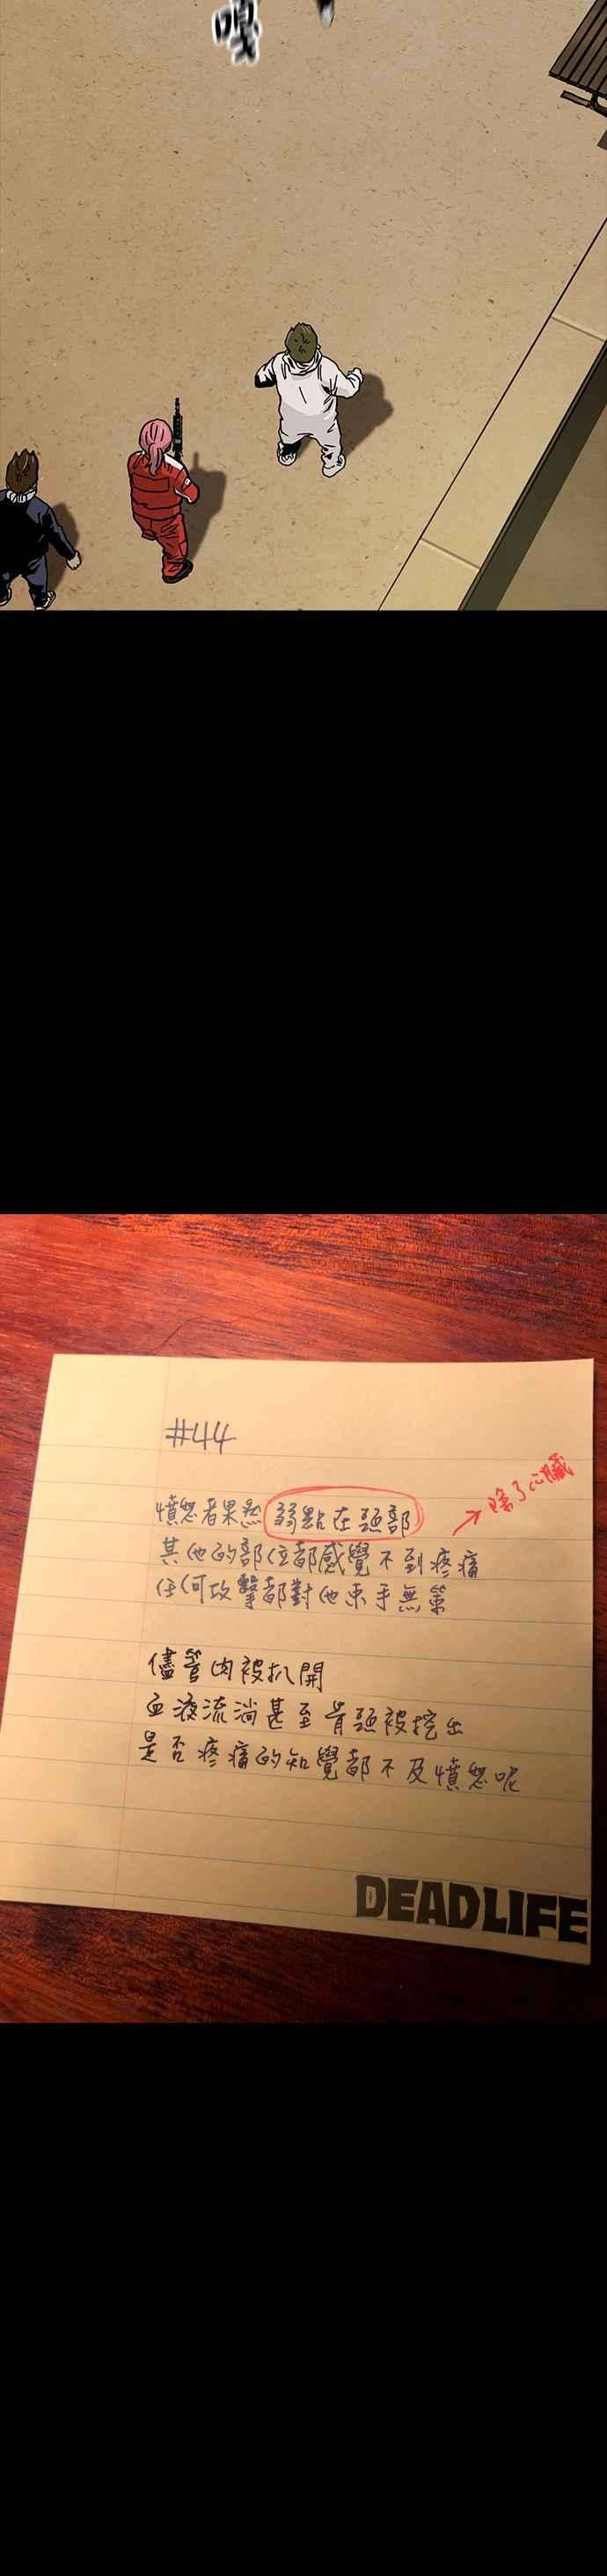 嘎
#44
憤怒者果然弱點在頭部
除了心臟
其他的部位都感覺不到疼痛
任何攻擊都對他束手無策
儘管肉被扒開
血液流淌甚至骨頭被挖出
是否疼痛的知覺都不及憤怒呢
DEAD LIFE